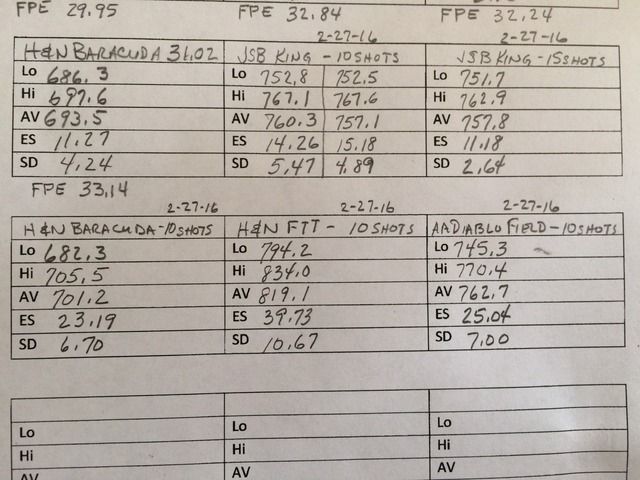 FPE 29.95 FPE 32.84 FPE 32.24
2-27-16 2-27-16
H&N BARACUDA 31.02 JSB KING - 10 SHOTS JSB KING - 15 SHOTS
Lo 686.3 Lo 752.8 752.5 Lo 751.7
Hi 697.6 Hi 767.1 767.6 Hi 762.9
AV 693.5 AV 760.3 757.1 AV 757.8
ES 11.27 ES 14.26 15.18 ES 11.18
SD 4.24 SD 5.47 4.89 SD 2.64
FPE 33.14
2-27-16 2-27-16 2-27-16
H&N BARACUDA-10 SHOTS H&N FTT - 10 SHOTS AADIABLO FIELD-10 SHOTS
Lo 682.3 Lo 794.2 Lo 745.3
Hi 705.5 Hi 834.0 Hi 770.4
AV 701.2 AV 819.1 AV 762.7
ES 23.19 ES 39.73 ES 25.04
SD 6.70 SD 10.67 SD 7.00
Lo Lo Lo
Hi Hi Hi
AV AV AV